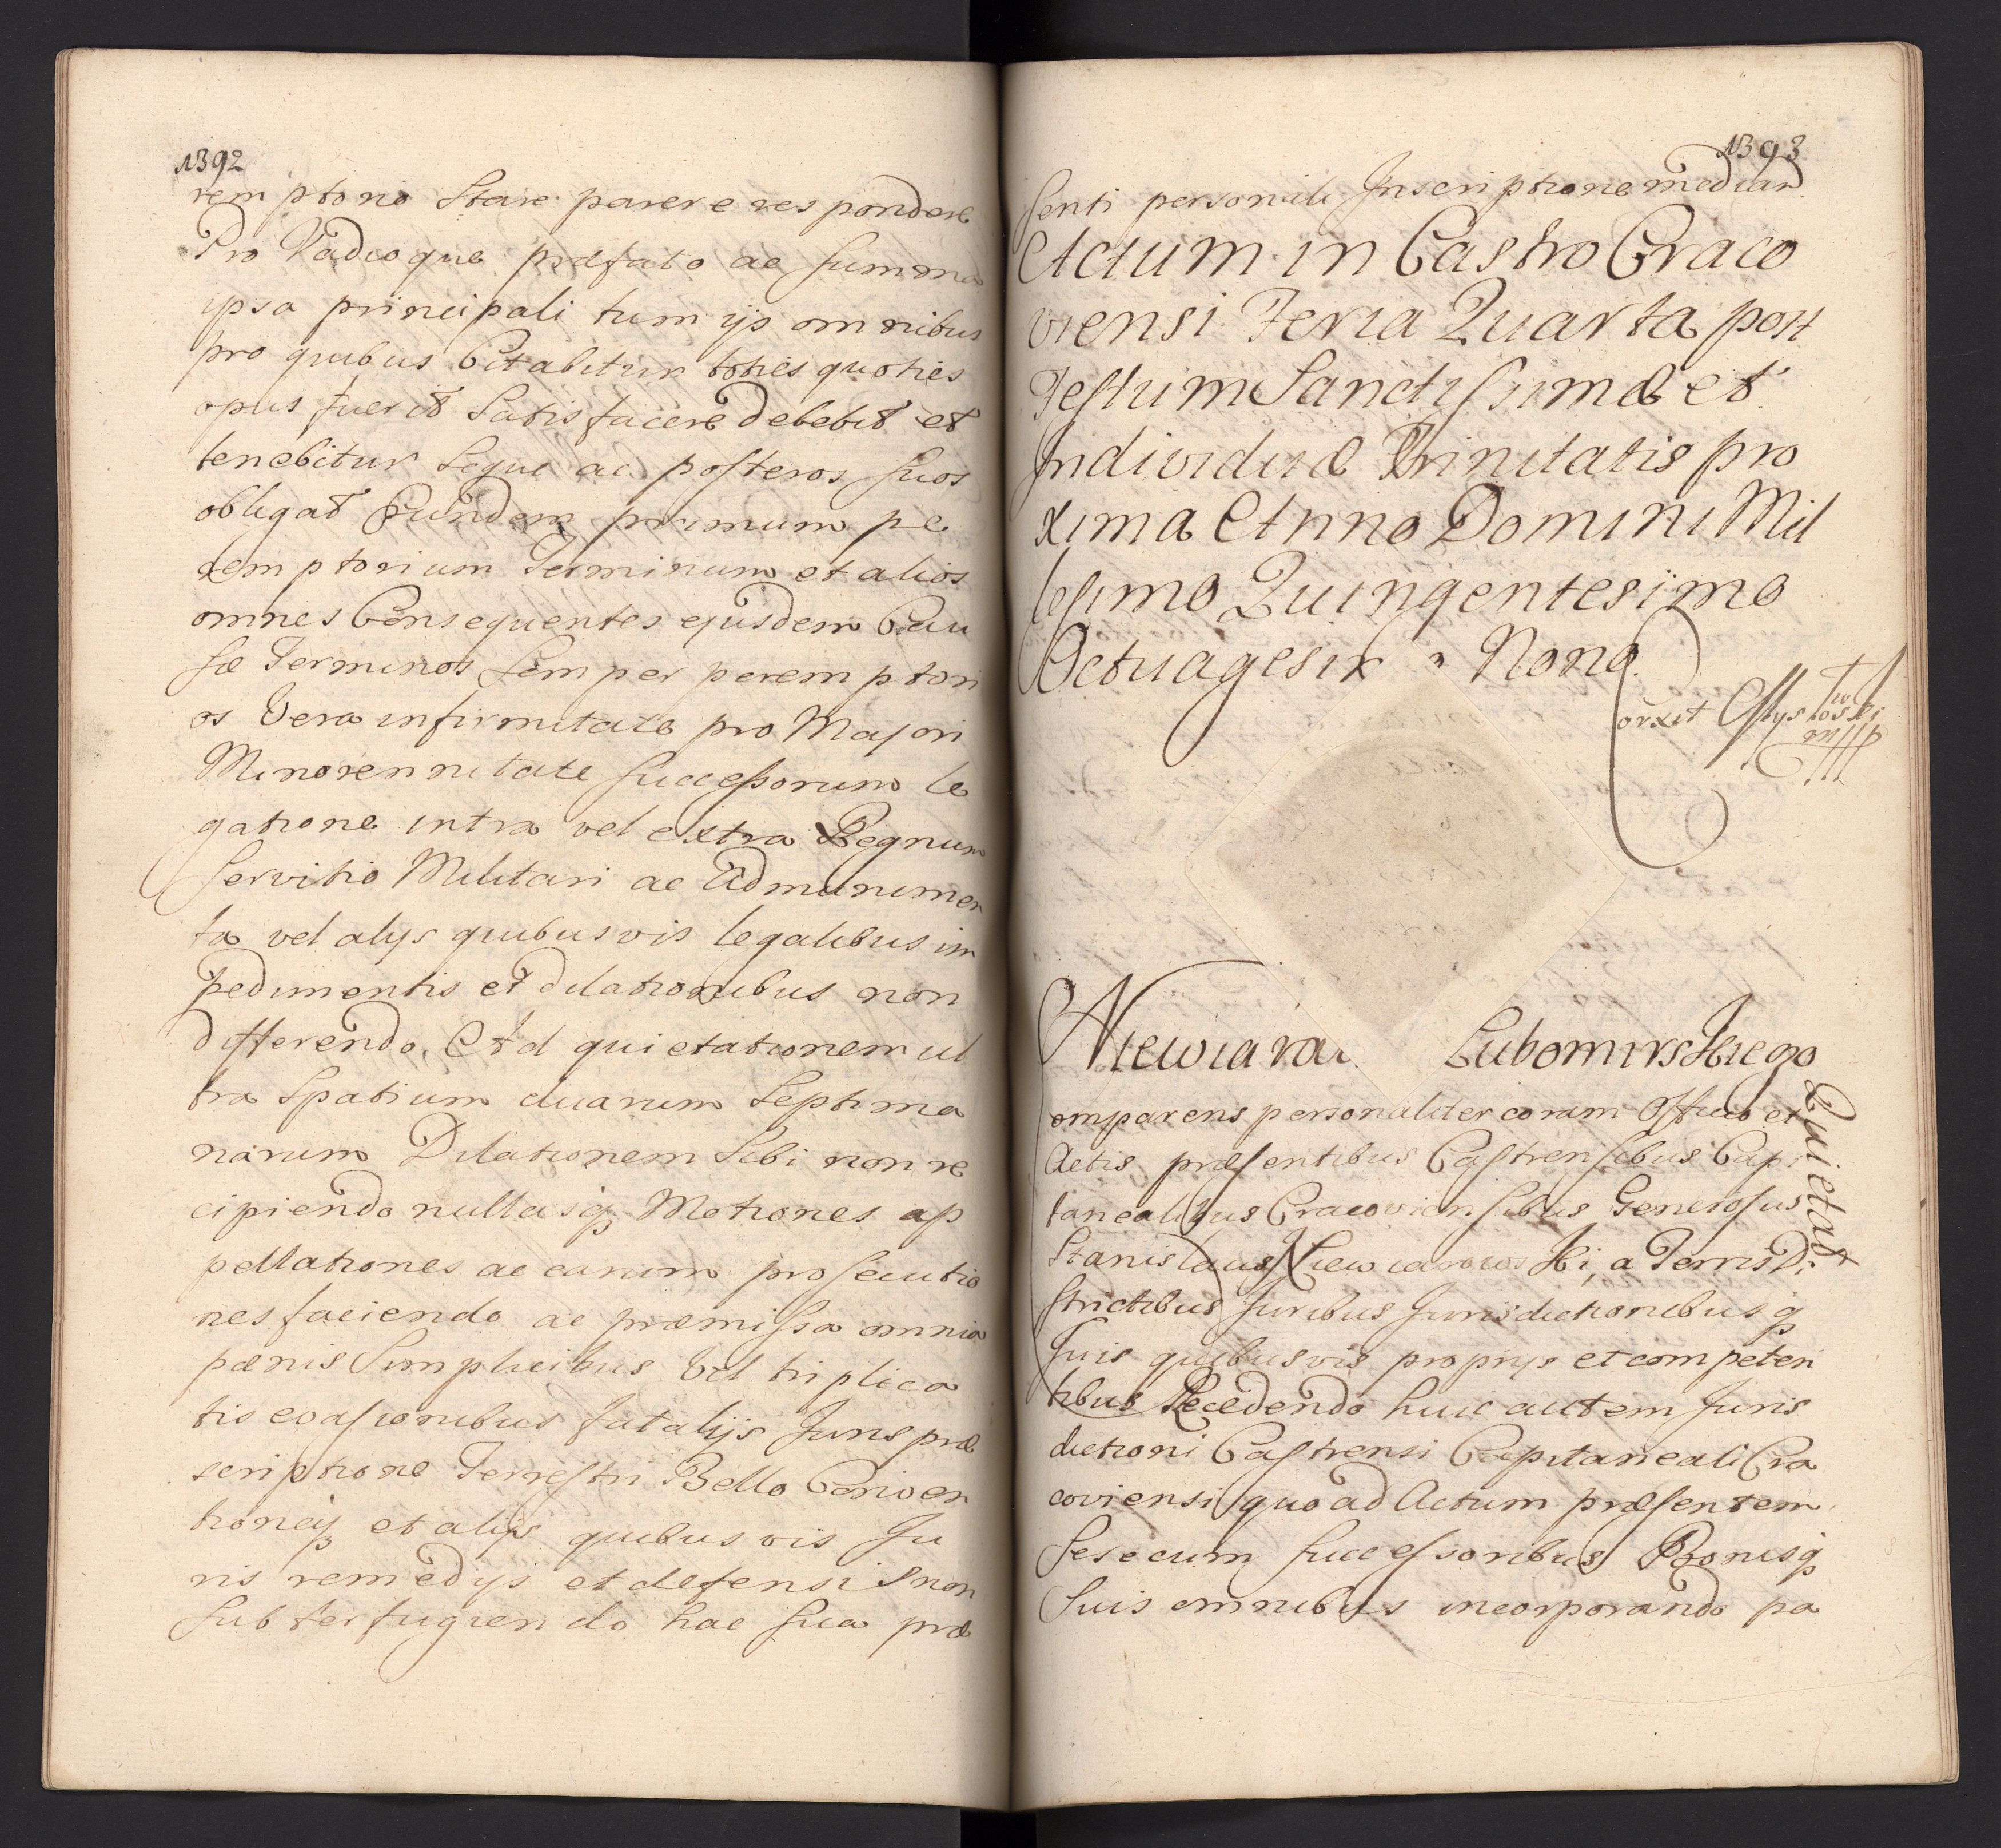 1392
remptorio Stare parere respondere
Pro Vadioque præfato ac summa
ipsa principali tum ijs omnibus
pro quibus Citabitur toties quoties
opus fuerit Satisfacere debebit et
tenebitur Seque ac posteros suos
obligat Eundem primum pe
remptorium Terminum et alios
omnes Consequentes ejusdem Cau
sæ Terminos Semper peremptori
os Vera infirmitate pro Majori
Minorennitate successorum le
gatione intra vel extra Regnum
servitio Militari ac Admunimen
ta vel alys quibusvis legalibus im
pedimentis et dilationibus non
differendo, Ad quietationem ul
tra Spatium duarum Septima
narum Dilationem Sibi non re
cipiendo nullasq Motiones ap
pellationes ac earum prosecutio
nes faciendo ac præmissa omnia
pænis Simplicibus Vel triplica
tis evasionibus fatalijs Juris præ
scriptione Terrestri Bello Conven
tioneq et alijs quibus vis Ju
ris remedys et defensis non
Subterfugiendo hac sua præ
1393
senti personali Inscriptione mediañ
Actum in Castro Craco
viensi Feria Quarta post
Festum Sanctissimæ et
Individuæ Trinitatis pro
xima Anno Domini Mil
lesimo Quingentesimo
Octuagesi Nono
Corxit
Niewiarow Lubomirskiego
Quietat
omparens personaliter coram Officio et
Actis præsentibus Castrensibus Capi
tanealibus Cracoviensibus Generosus
Stanislaus Niewiarowski, a Terris Di
strictibus Juribus Jurisdictionibusq
suis quibusvis proprys et competen
tibus Recedendo huic autem Juris
dictioni Castrensi Capitaneali Cra
coviensi quo ad Actum præsentem
sese cum successoribus Bonisq
Suis omnibus incorporando pa